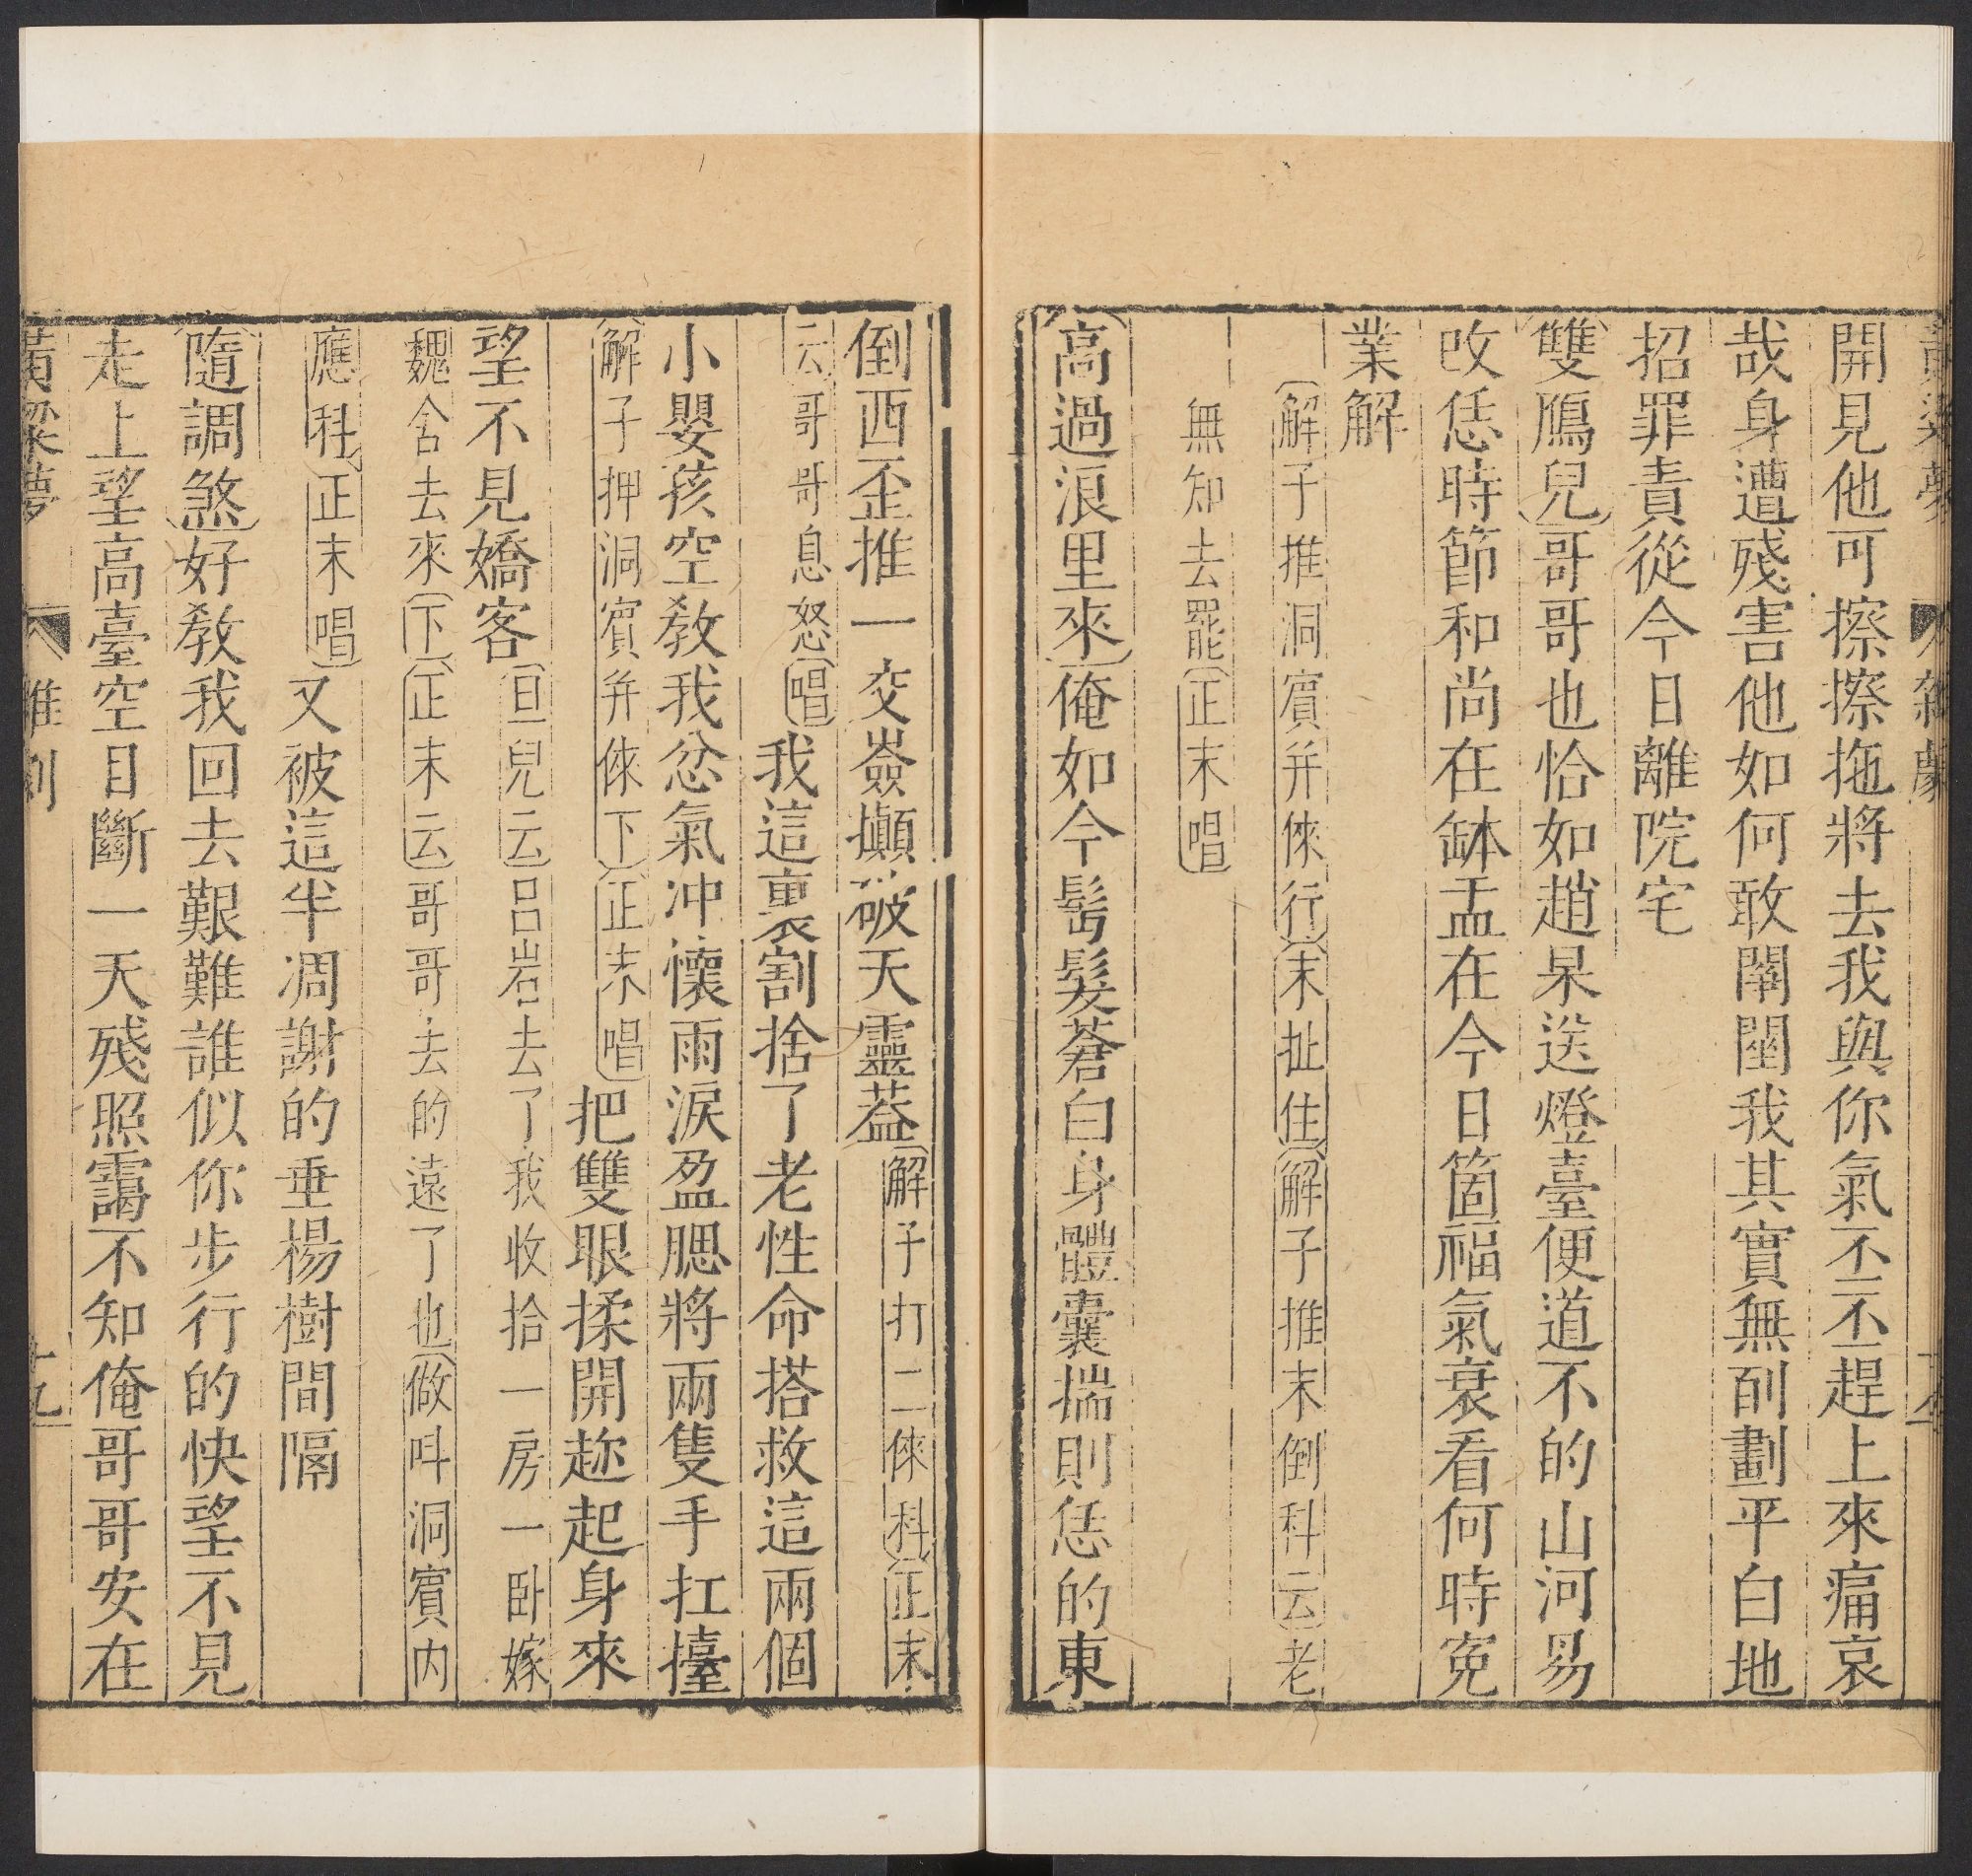 黃粱夢 雜劇
開見他可擦擦拖將去我與你氣丕丕趕上來痛哀
哉身遭殘害他如何敢闡閨我其實無刮劃平白地
招罪責從今日離院宅
雙鴈兒哥哥也恰如趙杲送燈臺便道不的山河易
改恁時節和尚在缽盂在今日箇福氣衰看何時寃
業解
解子推洞賓并倈行末扯住解子推末倒科云老
無知去罷正末唱
高過浪里來俺如今髩髮蒼白身體囊揣則恁的東
倒西歪推一交嶮攧破天靈蓋解子打二倈科正末
云哥哥息怒唱我這裏割捨了老性命搭救這兩個
小嬰孩空教我忿氣冲懷雨淚盈腮將兩隻手扛擡
解子押洞賓并倈下正末唱把雙眼揉開趂起身來
望不見嬌客旦兒云呂岩去了我收拾一房一卧嫁
魏舍去來下正末云哥哥去的遠了也做呌洞賓内
應科正末唱又被這半凋謝的垂楊樹間隔
隨調煞好教我回去艱難誰似你步行的快望不見
走上望高臺空目斷一天殘照靄不知俺哥哥安在
黃粱夢 雜劇 十九